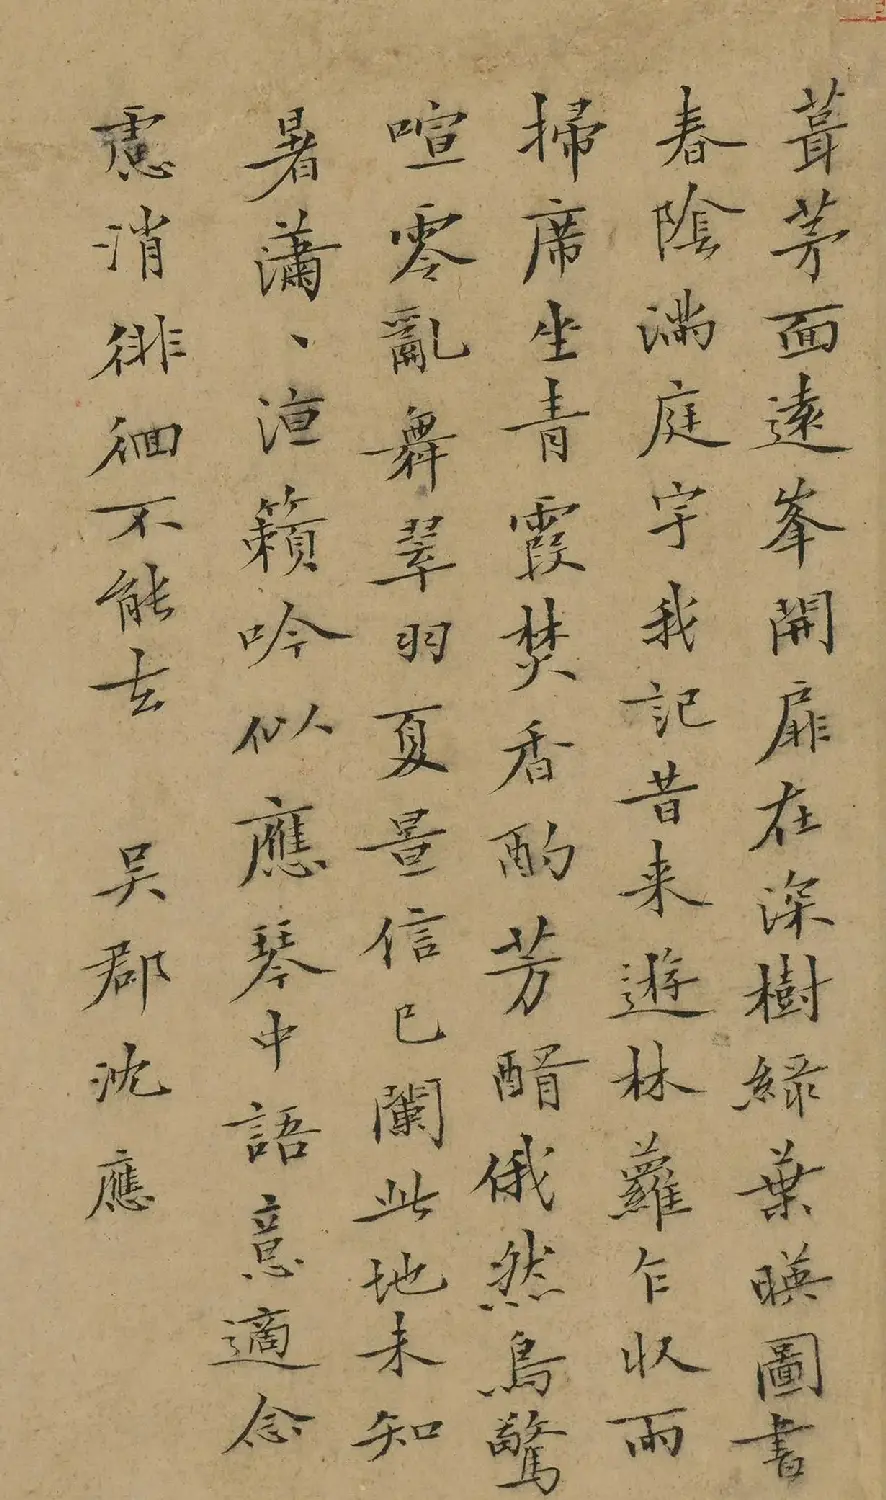 葺茅面遠峯開扉在深樹綠葉暎圖書
春陰滿庭宇我記昔来遊林蘿乍收雨
掃席坐青霞焚香酌芳醑俄然鳥驚
喧零亂舞翠羽夏景信已闌此地未知
暑瀟、洹籟吟似應琴中語意適念
慮消徘徊不能去 吳郡沈應